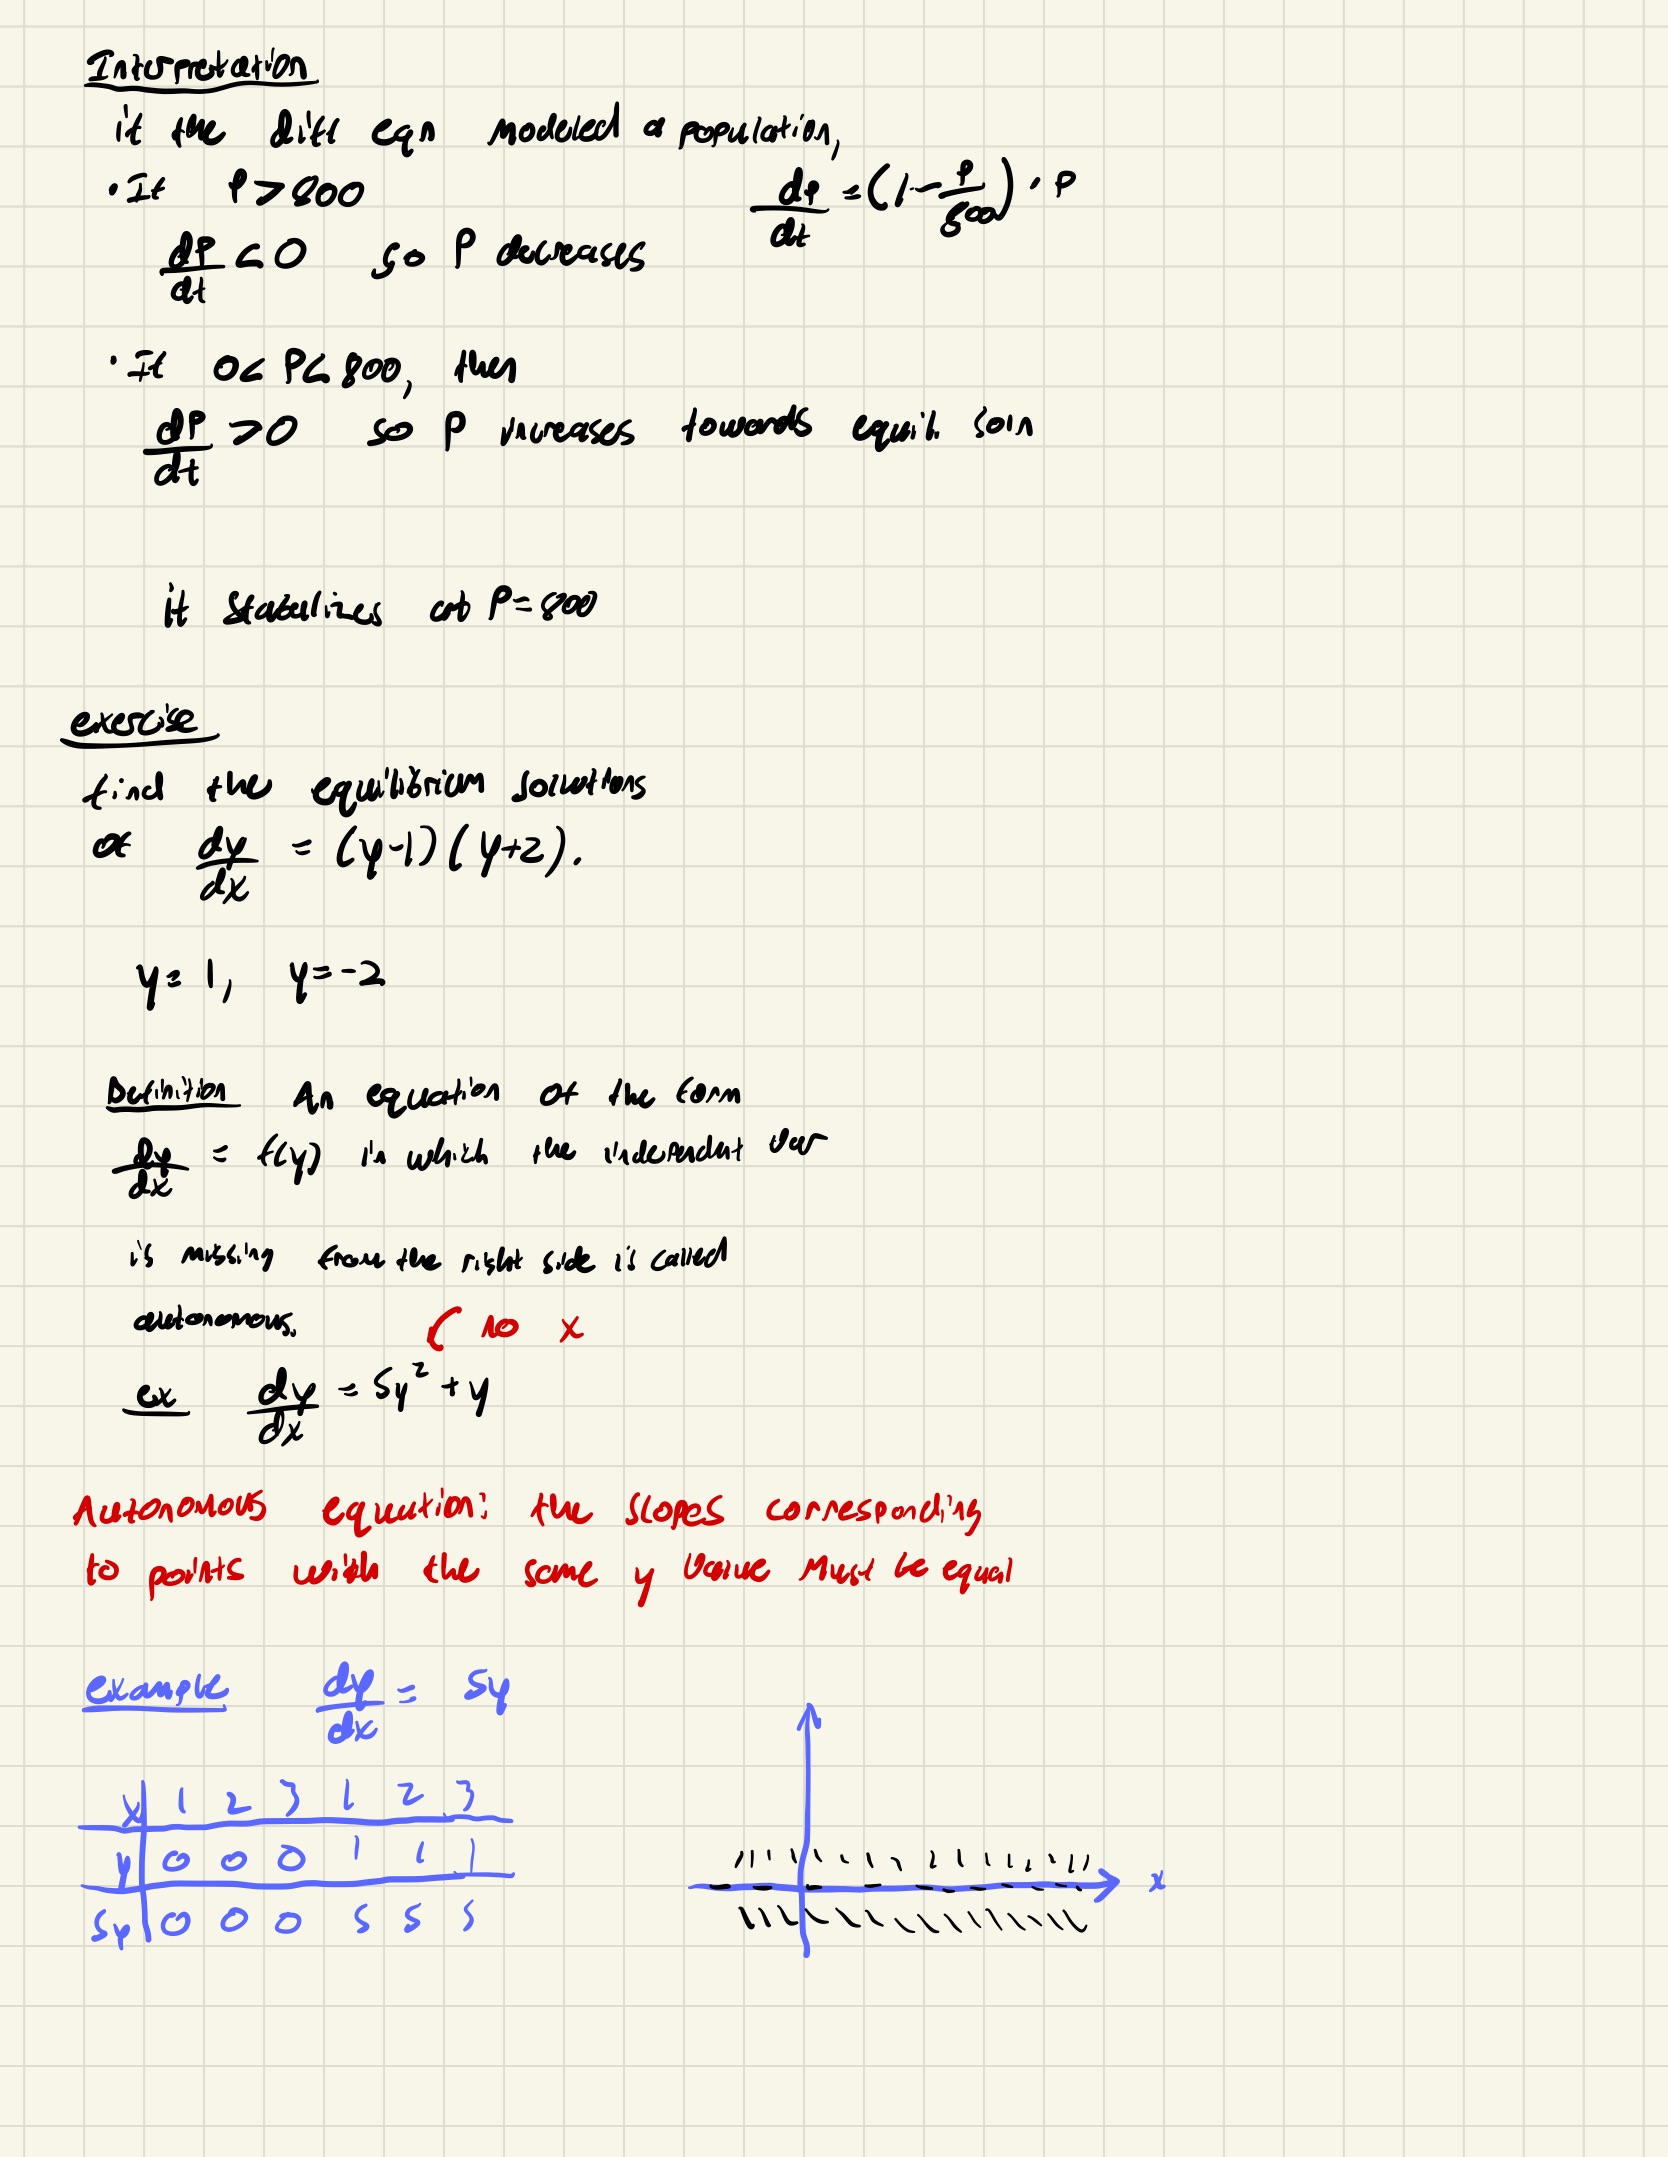 Interpretation
if the diff eqn modeled a population,
• If P > 800
dP/dt = (1 - P/800) · P
dP/dt < 0 so P decreases
• If 0 < P < 800, then
dP/dt > 0 so P increases towards equil. soln
it stabilizes at P = 800
exercise
find the equilibrium solutions
of dy/dx = (y-1)(y+2).
y = 1, y = -2
Definition An equation of the form
dy/dx = f(y) in which the independent var
is missing from the right side is called
autonomous.
( no x
ex dy/dx = 5y² + y
Autonomous equation: the slopes corresponding
to points with the same y value must be equal
example dy/dx = 5y
x 1 2 3 1 2 3
y 0 0 0 1 1 1
5y 0 0 0 5 5 5
x